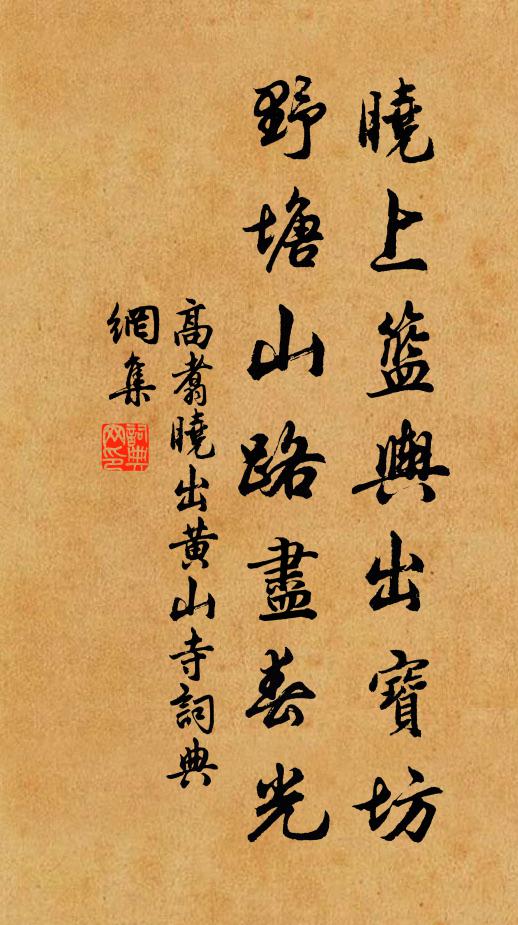 曉上籃輿出寶坊
野塘山路盡春光
高翥曉出黃山寺詞典
網集
詞典
网印